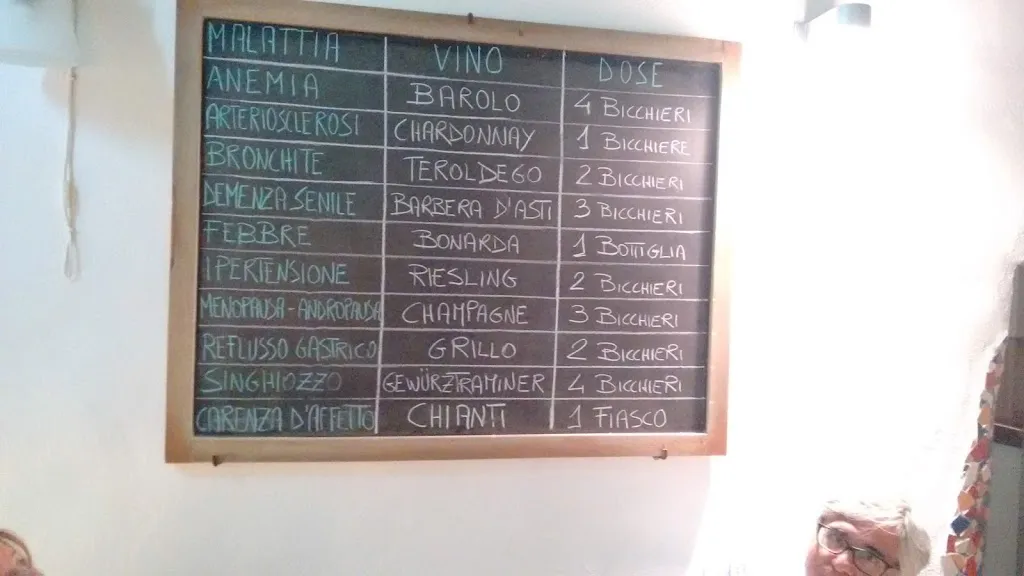 MALATTIA VINO DOSE
ANEMIA BAROLO 4 BICCHIERI
ARTERIOSCLEROSI CHARDONNAY 1 BICCHIERE
BRONCHITE TEROLDEGO 2 BICCHIERI
DEMENZA SENILE BARBERA D'ASTI 3 BICCHIERI
FEBBRE BONARDA 1 BOTTIGLIA
IPERTENSIONE RIESLING 2 BICCHIERI
MENOPAUSA-ANDROPAUSA CHAMPAGNE 3 BICCHIERI
REFLUSSO GASTRICO GRILLO 2 BICCHIERI
SINGHIOZZO GEWÜRZTRAMINER 4 BICCHIERI
CARENZA D'AFFETTO CHIANTI 1 FIASCO